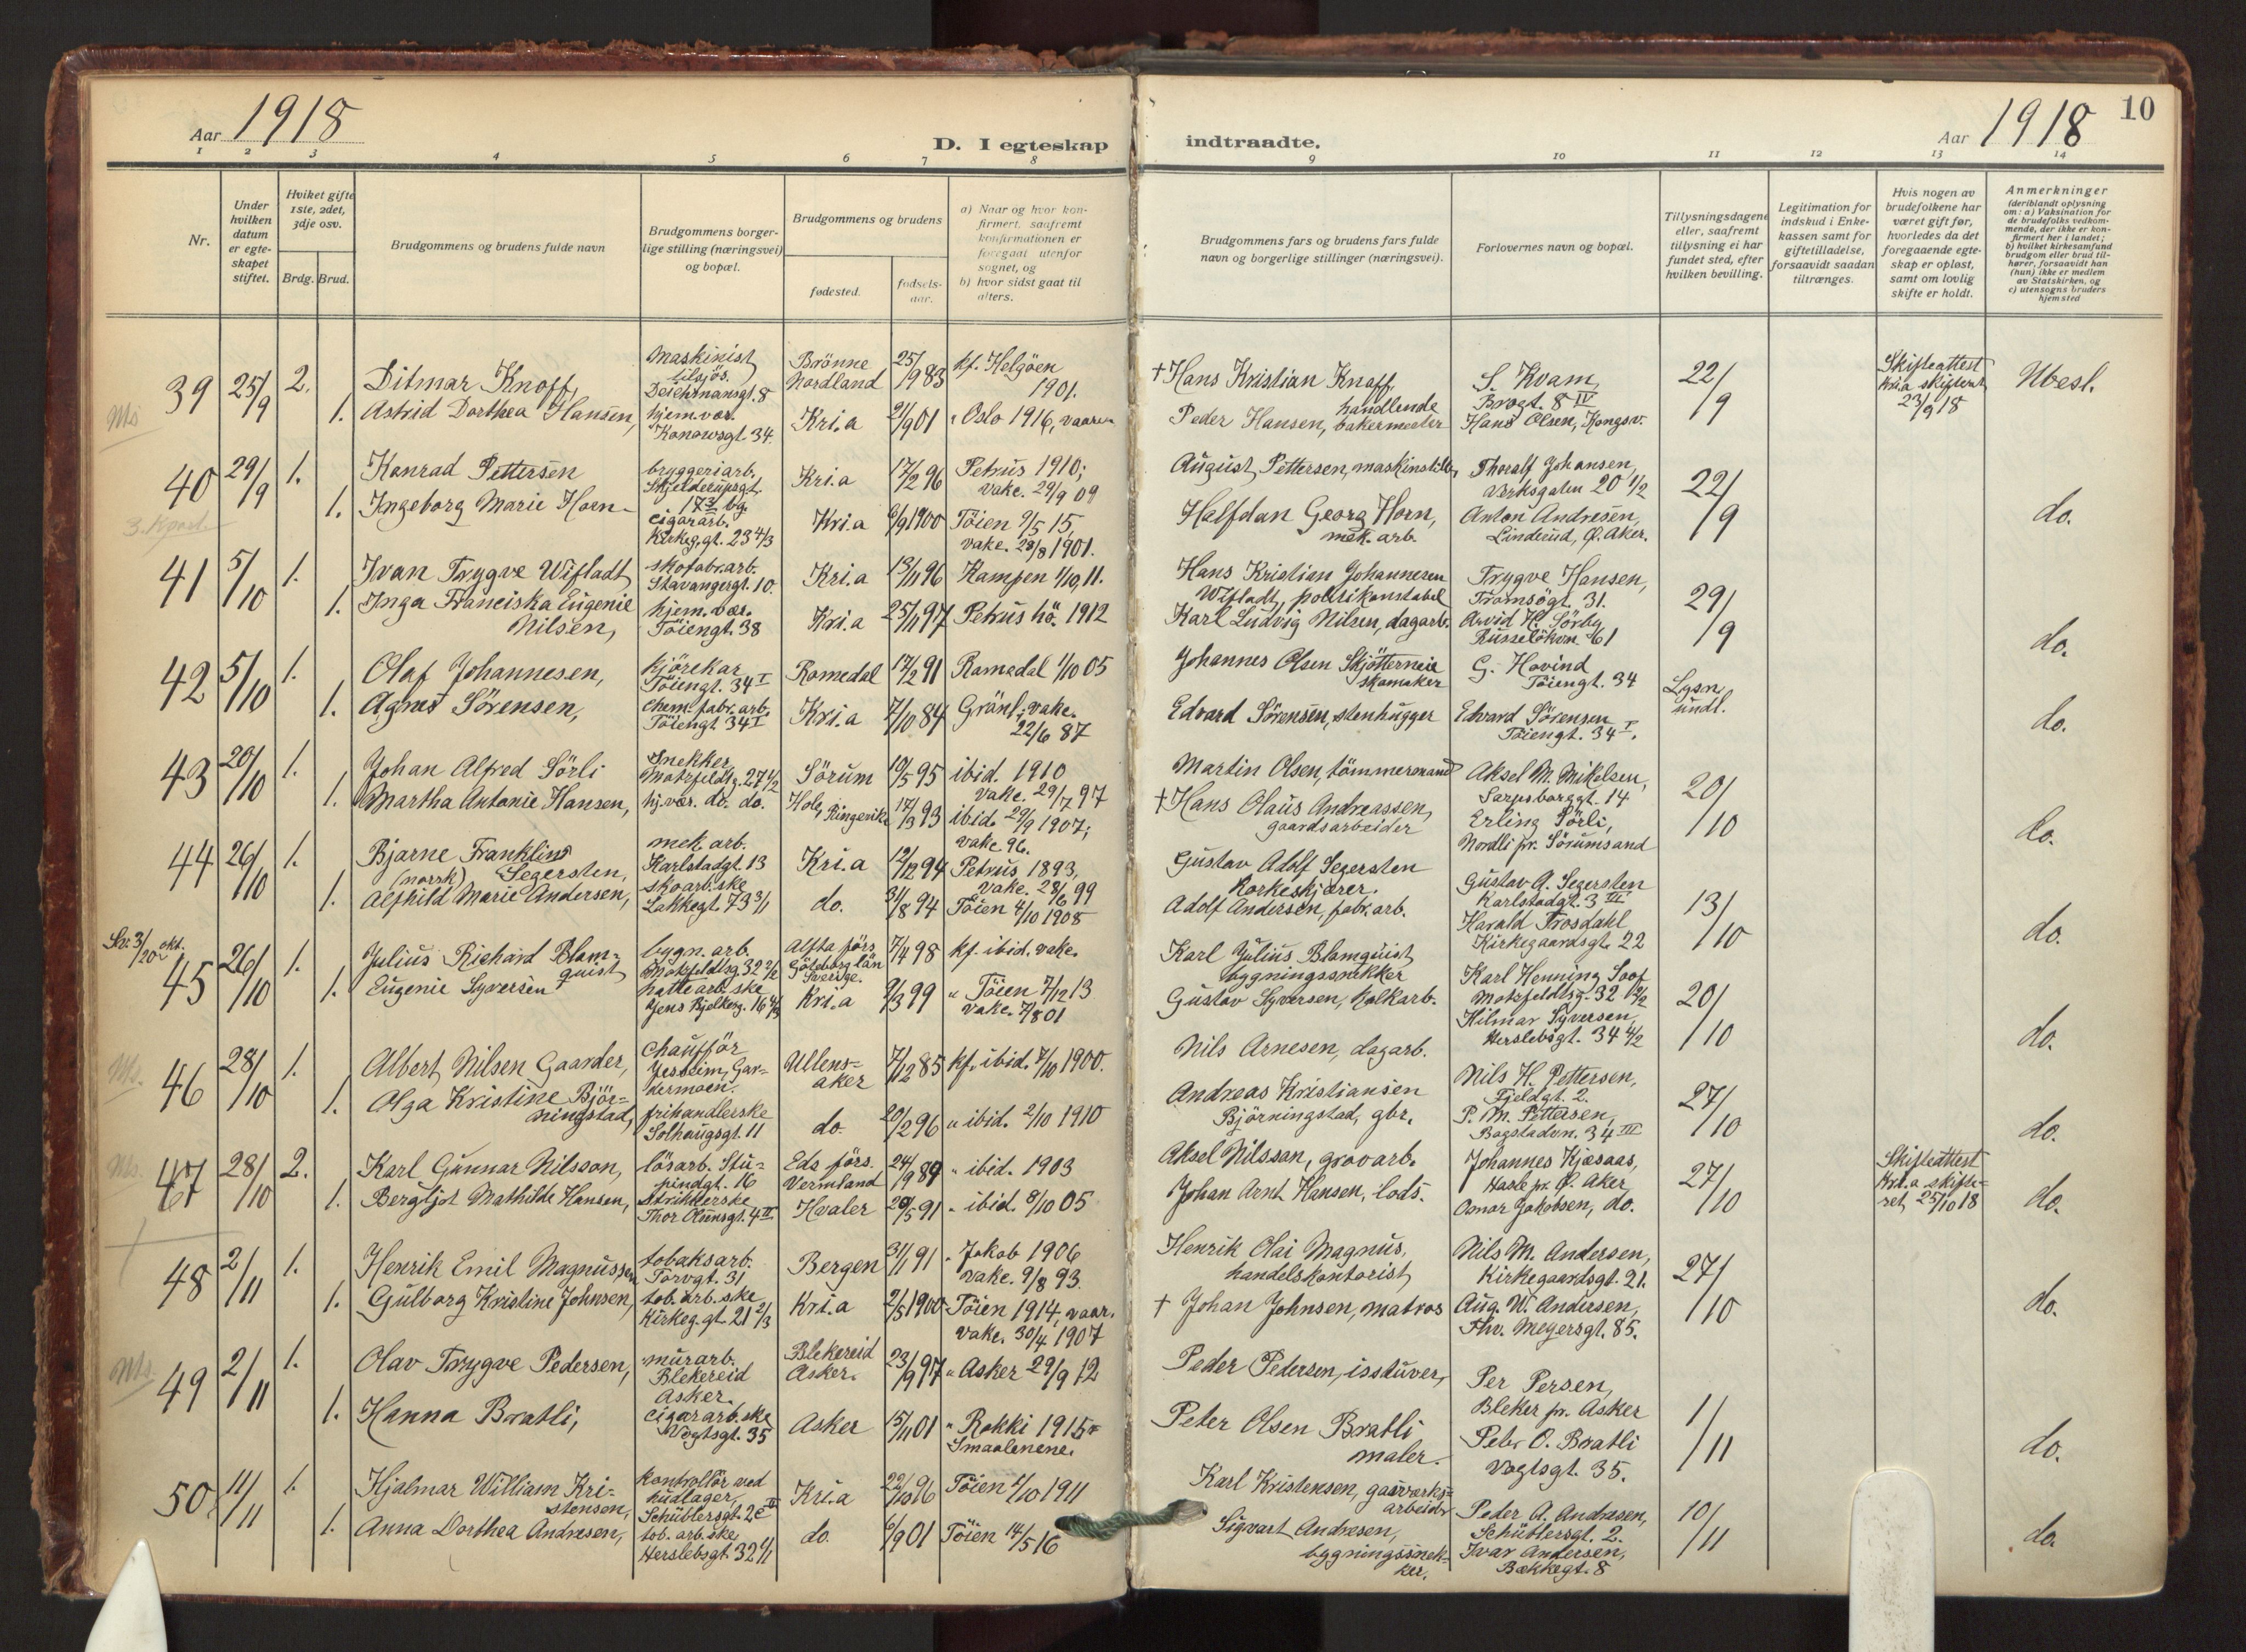 Aar 1918
D. I egteskap
indtraadte.
Aar 1918
10
1 2 3 4 5 6 7 8 9 10 11 12 13 14
Nr.
Under hvilken datum er egteskapet stiftet.
Hviket gifte 1ste, 2det, 3dje osv.
Brdg. Brud.
Brudgommens og brudens fulde navn
Brudgommens borgerlige stilling (næringsvei) og bopæl.
Brudgommens og brudens
fødested.
fødselsaar.
a) Naar og hvor konfirmert, saafremt konfirmationen er foregaat utenfor sognet, og
b) hvor sidst gaat til alters.
Brudgommens fars og brudens fars fulde navn og borgerlige stillinger (næringsvei).
Forlovernes navn og bopæl.
Tillysningsdagene eller, saafremt tillysning ei har fundet sted, efter hvilken bevilling.
Legitimation for indskud i Enkekassen samt for giftetilladelse, forsaavidt saadan tiltrænges.
Hvis nogen av brudefolkene har været gift før, hvorledes da det foregaaende egteskap er opløst, samt om lovlig skifte er holdt.
Anmerkninger (deriblandt oplysning om: a) Vaksination for de brudefolks vedkommende, der ikke er konfirmert her i landet; b) hvilket kirkesamfund brudgom eller brud tilhører, forsaavidt han (hun) ikke er medlem av Statskirken, og c) utensogns bruders hjemsted
39 25/9 2. Ditmar Knoff, Maskinist tilsjøs. Deichmansgt. 8 Brönne Nordland 25/9 83 kf. Helgöen 1901. † Hans Kristian Knoff, handlende S. Kvam, Brogt. 8 IV 22/9 Skifteattest Kri.a skifteret 23/9 18 Wesl.
1. Astrid Dorthea Hansen, hjem.vær. Konowsgt. 34 Kri.a 21/9 01 " Oslo 1916, vaaren Peder Hansen, bakermester Hans Olsen, Kongsv.
40 29/9 1. Konrad Pettersen bryggeriarb. Skjelderupsgt. 17 3 bg. Kri.a 17/2 96 Petrus 1910; vake. 29/9 09 August Pettersen, maskinstill. Thoralf Johansen, Verksgaten 20 1/2 22/9 do.
1. Ingeborg Marie Horn cigararb. Kirkeg.gt. 23 4/3 Kri.a 6/9 1900 Töien 9/5 15, vake. 28/8 1901. Halfdan Georg Horn, mek. arb. Anton Andresen, Linderud, Ø. Aker.
41 5/10 1. Ivan Trygve Wifladt skofabr.arb. Stavangergt. 10. Kri.a 13/11 96 Kampen 1/10 11. Hans Kristian Johannesen Wifladt, politikonstabel Trygve Hansen, Tromsögt. 31. 29/9 do.
1. Inga Franciska Eugenie Nilsen, hjem.vær. Töiengt. 38 Kri.a 25/11 97 Petrus hö. 1912 Karl Ludvig Nilsen, dagarb. Arvid H. Sörby Russelökvn 61
42 5/10 1. Olaf Johannesen, kjörekar Töiengt. 34 I Romedal 17/2 91 Romedal 1/10 05 Johannes Olsen Skjötterneie skomaker G. Hovind Töiengt. 34 Lysn. undl. do.
1. Agnes Sörensen, chem.fabr.arb. Töiengt 34 I Kri.a 7/10 84 Grönl., vake. 22/6 87 Edvard Sörensen, stenhugger Edvard Sörensen Töiengt. 34 I.
43 20/10 1. Johan Alfred Sörli Snekker Motzfeldtsg. 27 4/2 Sörum 10/5 95 ibid. 1910 vake. 29/7 97 Martin Olsen, tömmermand Aksel M. Mikelsen, Sarpsborggt. 14 20/10 do.
1. Martha Antonie Hansen, hj.vær. do. do. Hole, Ringerike 17/3 93 ibid. 29/9 1907; vake 96. † Hans Olaus Andreassen, gaardsarbeider Erling Sörli, Nordli pr. Sörumsand
44 26/10 1. Bjarne Franklin (norrk) Segersten, mek. arb. Karlstadgt. 13 Kri.a 12/12 94 Petrus 1893, vake. 28/6 99 Gustav Adolf Segersten Korkeskjærer. Gustav A. Segersten Karlstadgt. 3 III 13/10 do.
1. Alfhild Marie Andersen, skoarb.ske Lakkegt. 73 3/1 do. 31/8 94 Töien 4/10 1908 Adolf Andersen, fabr.arb. Harald Trosdahl Kirkegaardsgt. 22
45 26/10 1. Julius Richard Blomquist bygn. arb. Motzfeldtsg. 32 2/2 Alfta förs. Göteborg län Sverige. 7/4 98 kf. ibid. vake. Karl Julius Blomquist bygningssnekker Karl Henning Loof Motzfeldtsg. 32 2/2 20/10 do.
1. Eugenie Syversen hattearb.ske Jens Bjelkesg. 16 4/3 Kri.a 9/3 99 " Töien 7/12 13 Vake. 7/8 01 Gustav Syversen, kolkarb. Hilmar Syversen, Herslebsgt. 34 4/2
Ms. 46 28/10 1. Albert Nilsen Gaarder, chaufför Jessheim, Gardermoen. Ullensaker 7/12 85 kf. ibid. 7/10 1900. Nils Arnesen, dagarb. Nils H. Pettersen, Fjeldgt. 2. 27/10 do.
1. Olga Kristine Björningstad, frihandlerske Solhaugsgt. 11 do. 20/2 96 " ibid. 2/10 1910 Andreas Kristiansen Björningstad, gbr. P. M. Pettersen, Bogstadvn. 34 III
Ms. 47 28/10 2. Karl Gunnar Nilsson, lösarb. Stupindgt. 16 Eds förs. Vermland 24/9 89 " ibid. 1903 Aksel Nilsson, grovarb. Johannes Kjæsaas, Hasle pr. Ø. Aker 27/10 Skifteattest Kri.a skifteret 25/10 18 do.
1. Bergljot Mathilde Hansen, strikkerske Thor Olsensgt. 4 II Hvaler 20/5 91 " ibid. 8/10 05 Johan Arnt Hansen, lods. Osmar Jakobsen, do.
48 2/11 1. Henrik Emil Magnussen tobaksarb. Torvgt. 31 Bergen 31/1 91 " Jakob 1906 vake. 9/8 93. Henrik Olai Magnus, handelskontorist Nils M. Andersen, Kirkegaardsgt. 21. 27/10 do.
1. Gulborg Kristine Johnsen, tob.arb.ske Kirkeg.gt. 21 2/3 Kri.a 2/5 1900 Töien 1914, vaar. vake. 30/4 1907 † Johan Johnsen, matros Aug. W. Andersen, Thv. Meyersgt. 85.
Ms. 49 2/11 1. Olav Trygve Pedersen, murarb. Blekereid Asker. Blekereid Asker. 23/9 97 " Asker 29/9 12 Peder Pedersen, isstuver, Per Persen, Bleker pr. Asker 1/11 do.
1. Hanna Bratli, cigararb.ske Vogtsgt. 35 Asker 15/11 01 " Rokki 1915 Smaalenene. Peter Olsen Bratli maler. Peter O. Bratli Vogtsgt. 35.
50 11/11 1. Hjalmar William Kristensen, kontrollör ved hudlager Schüblersgt. 2c IV Kri.a 22/10 96 Töien 1/10 1911 Karl Kristensen, gasværksarbeider Peder A. Andresen, Schüblersgt. 2. 10/11 do.
1. Anna Dorthea Andresen, tob. arb.ske Herslebsgt. 32 1/1 do. 6/9 01 Töien 14/5 16 Sigvart Andresen, bygningssnekker. Ivar Andersen, Bækkegt. 8